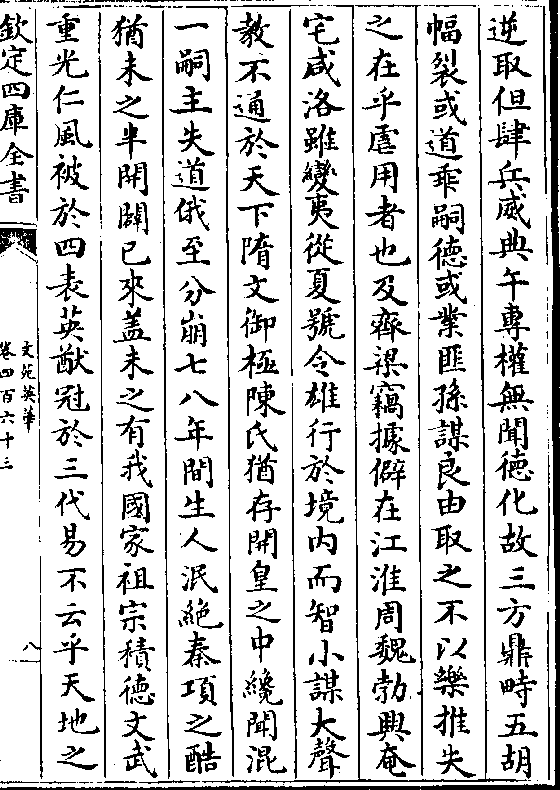 逆取但肆兵威典午專權無聞徳化故三方鼎畤五胡
幅裂或道乖嗣徳或業匪孫謀良由取之不以樂推失
之在乎虐用者也及齊梁竊據僻在江淮周魏勃興奄
宅咸洛雖變夷從夏號令雄行於境内而智小謀大聲
教不通於天下隋文御極陳氏猶存開皇之中纔聞混
一嗣主失道俄至分崩七八年間生人泯絶秦項之酷
猶未之半開闢已來盖未之有我國家祖宗積徳文武
重光仁風被於四表英猷冠於三代易不云乎天地之
欽定四庫全書
文苑英華
卷四百六十三
八